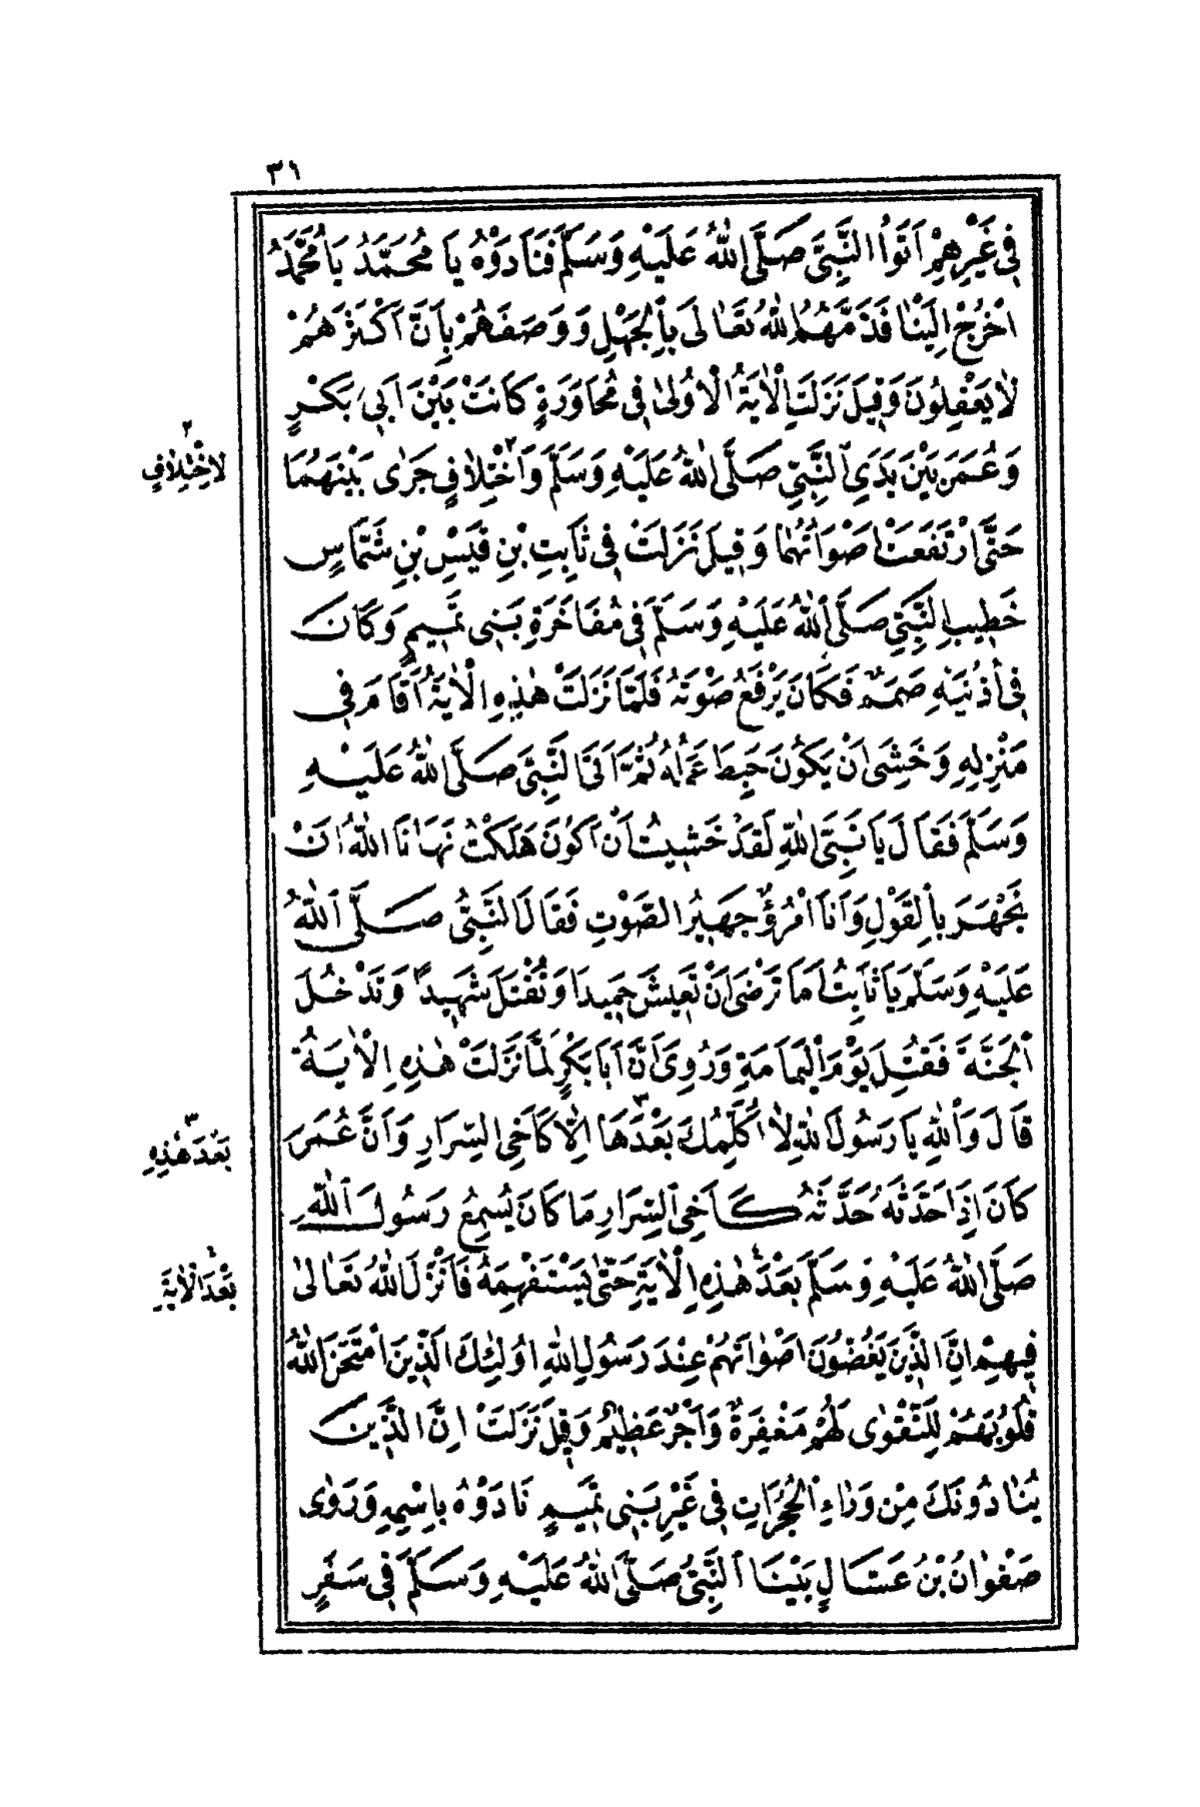 ٣١
فِي غَيْرِهِمْ اَتَوُا النَّبِيَّ صَلَّى اللّٰهُ عَلَيْهِ وَسَلَّمَ فَنَادَوْهُ يَا مُحَمَّدُ يَا مُحَمَّدُ
اُخْرُجْ اِلَيْنَا فَذَمَّهُمُ اللّٰهُ تَعَالٰى بِالْجَهْلِ وَوَصَفَهُمْ بِاَنَّ اَكْثَرَهُمْ
لَا يَعْقِلُونَ وَقِيلَ نَزَلَتِ الْاٰيَةُ الْاُولٰى فِي مُحَاوَرَةٍ كَانَتْ بَيْنَ اَبِي بَكْرٍ
وَعُمَرَ بَيْنَ يَدَيِ النَّبِيِّ صَلَّى اللّٰهُ عَلَيْهِ وَسَلَّمَ وَاخْتِلَافٍ٢ جَرٰى بَيْنَهُمَا
٢ لِاخْتِلَافٍ
حَتَّى ارْتَفَعَتْ اَصْوَاتُهُمَا وَقِيلَ نَزَلَتْ فِي ثَابِتِ بْنِ قَيْسِ بْنِ شَمَّاسٍ
خَطِيبِ النَّبِيِّ صَلَّى اللّٰهُ عَلَيْهِ وَسَلَّمَ فِي مُفَاخَرَةِ بَنِي تَمِيمٍ وَكَانَ
فِي اُذُنَيْهِ صَمَمٌ فَكَانَ يَرْفَعُ صَوْتَهُ فَلَمَّا نَزَلَتْ هٰذِهِ الْاٰيَةُ اَقَامَ فِي
مَنْزِلِهِ وَخَشِيَ اَنْ يَكُونَ حَبِطَ عَمَلُهُ ثُمَّ اَتَى النَّبِيَّ صَلَّى اللّٰهُ عَلَيْهِ
وَسَلَّمَ فَقَالَ يَا نَبِيَّ اللّٰهِ لَقَدْ خَشِيتُ اَنْ اَكُونَ هَلَكْتُ نَهَانَا اللّٰهُ اَنْ
نَجْهَرَ بِالْقَوْلِ وَاَنَا امْرُؤٌ جَهِيرُ الصَّوْتِ فَقَالَ النَّبِيُّ صَلَّى اللّٰهُ
عَلَيْهِ وَسَلَّمَ يَا ثَابِتُ اَمَا تَرْضٰى اَنْ تَعِيشَ حَمِيدًا وَتُقْتَلَ شَهِيدًا وَتَدْخُلَ
الْجَنَّةَ فَقُتِلَ يَوْمَ الْيَمَامَةِ وَرُوِيَ اَنَّ اَبَا بَكْرٍ لَمَّا نَزَلَتْ هٰذِهِ الْاٰيَةُ
قَالَ وَاللّٰهِ يَا رَسُولَ اللّٰهِ لَا اُكَلِّمُكَ بَعْدَهَا٣ اِلَّا كَاَخِي السِّرَارِ وَاَنَّ عُمَرَ
٣ بَعْدَ هٰذِهِ
كَانَ اِذَا حَدَّثَهُ حَدَّثَهُ كَاَخِي السِّرَارِ مَا كَانَ يُسْمِعُ رَسُولَ اللّٰهِ
صَلَّى اللّٰهُ عَلَيْهِ وَسَلَّمَ بَعْدَ٤ هٰذِهِ الْاٰيَةِ حَتّٰى يَسْتَفْهِمَهُ فَاَنْزَلَ اللّٰهُ تَعَالٰى
٤ بَعْدَ الْاٰيَةِ
فِيهِمْ اِنَّ الَّذِينَ يَغُضُّونَ اَصْوَاتَهُمْ عِنْدَ رَسُولِ اللّٰهِ اُولٰئِكَ الَّذِينَ امْتَحَنَ اللّٰهُ
قُلُوبَهُمْ لِلتَّقْوٰى لَهُمْ مَغْفِرَةٌ وَاَجْرٌ عَظِيمٌ وَقِيلَ نَزَلَتْ اِنَّ الَّذِينَ
يُنَادُونَكَ مِنْ وَرَاءِ الْحُجُرَاتِ فِي غَيْرِ بَنِي تَمِيمٍ نَادَوْهُ بِاسْمِهِ وَرَوٰى
صَفْوَانُ بْنُ عَسَّالٍ بَيْنَا النَّبِيُّ صَلَّى اللّٰهُ عَلَيْهِ وَسَلَّمَ فِي سَفَرٍ